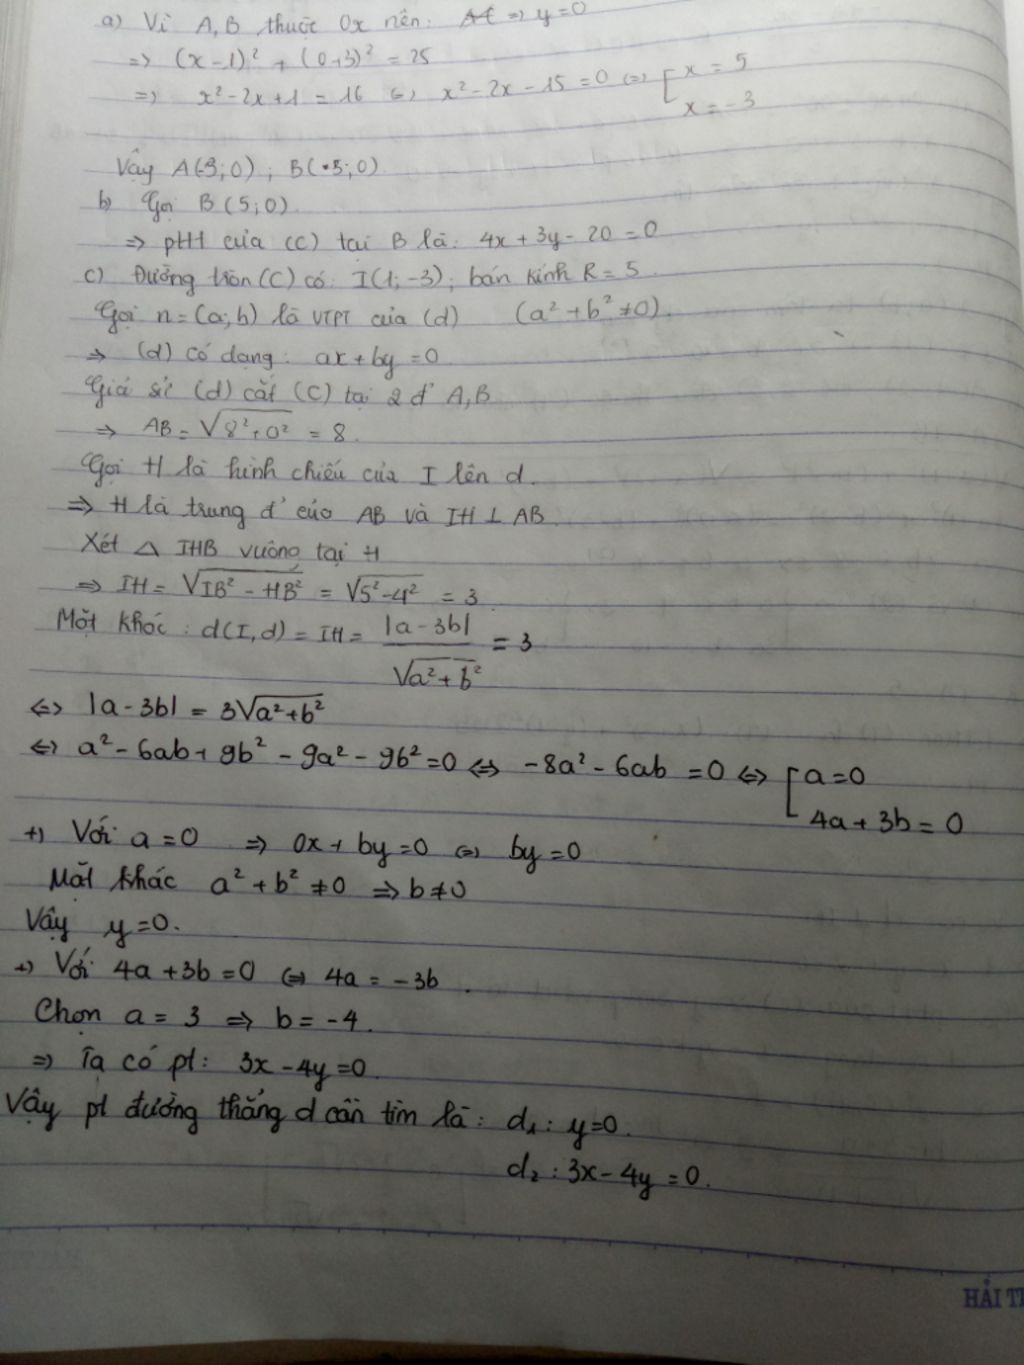 a) Vì A, B thuộc Ox nên: => y=0
=> (x-1)² + (0+3)² = 25
=> x²-2x+1 = 16 <=> x²-2x-15 =0 <=> [ x = 5
x = -3
Vậy A(-3;0); B(5;0)
b) Gọi B(5;0)
=> ptTT của (C) tại B là: 4x+3y-20 =0
c) Đường tròn (C) có: I(1;-3); bán kính R=5.
Gọi n=(a;b) là VTPT của (d) (a²+b²≠0).
=> (d) có dạng: ax+by=0
Giả sử (d) cắt (C) tại 2 đ' A,B
=> AB=√8²+0² = 8.
Gọi H là hình chiếu của I lên d.
=> H là trung đ' của AB và IH⊥AB.
Xét △ IHB vuông tại H
=> IH= √IB²-HB² = √5²-4² = 3.
Mặt khác: d(I,d) = IH= |a-3b| / √a²+b² = 3
<=> |a-3b| = 3√a²+b²
<=> a²-6ab+9b²-9a²-9b²=0 <=> -8a²-6ab =0 <=> [ a=0
4a+3b=0
+) Với a=0 => 0x+by=0 <=> by=0
Mặt khác a²+b²≠0 => b≠0
Vậy y=0.
+) Với 4a+3b=0 <=> 4a=-3b.
Chọn a=3 => b=-4.
=> Ta có pt: 3x-4y=0.
Vậy pt đường thẳng d cần tìm là: d₁: y=0.
d₂: 3x-4y=0.